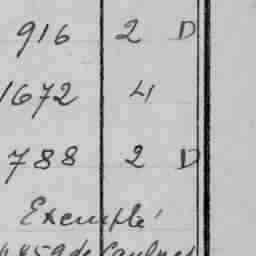 916 2 D
1672 4
788 2 D
Exempté